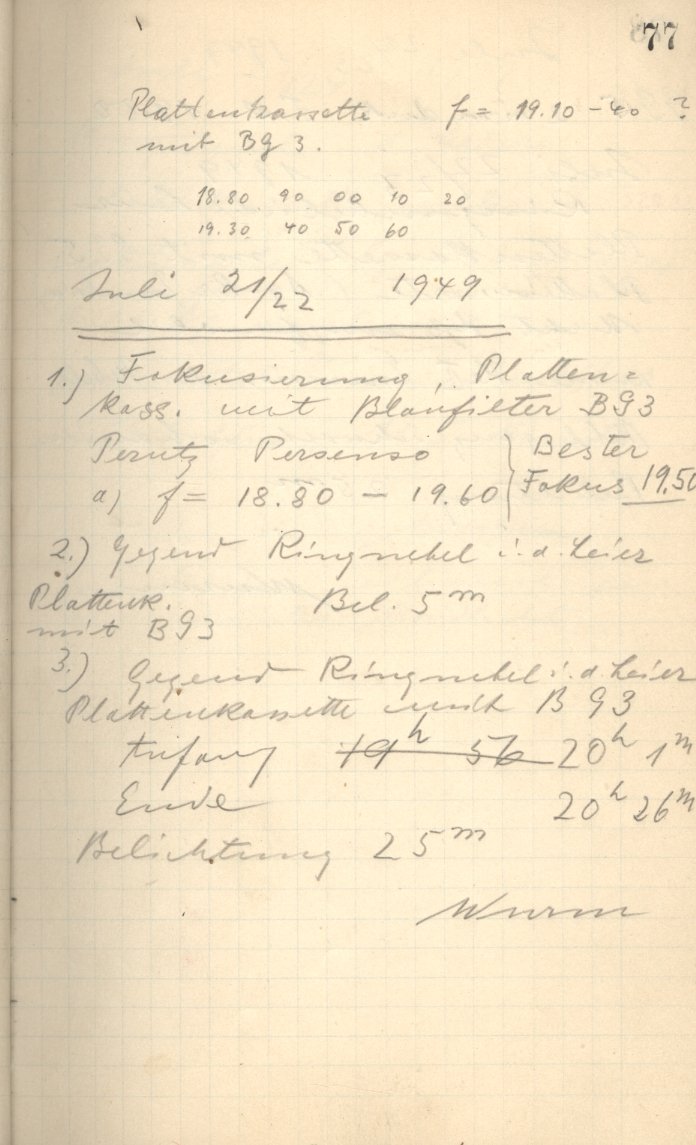 77
Plattenkassette f = 19.10 - 40 ?
mit BG 3.
18.80 90 00 10 20
19.30 40 50 60
Juli 21/22 1949
1.) Fokusierung, Platten=
kass. mit Blaufilter BG3
Perutz Persenso } Bester
a) f = 18.80 - 19.60 Fokus 19.50
2.) Gegend Ringnebel i. d. Leier
Plattenk. Bel. 5m
mit BG3
3.) Gegend Ringnebel i. d. Leier
Plattenkassette mit BG3
Anfang 19h 56 20h 1m
Ende 20h 26m
Belichtung 25m
Wurm